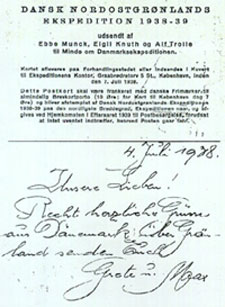 DANSK NORDOSTGRØNLANDS
EKSPEDITION 1938-39
udsendt af
Ebbe Munck, Eigil Knuth og Alf Trolle
til Minde om Danmarksekspeditionen.
Kortet afleveres paa Forhandlingsstedet eller indsendes i Kuvert
til Ekspeditionens Kontor, Graabrødretorv 5 St., København, inden
den 7. Juli 1938.
Dette Postkort skal være frankeret med danske Frimærker
almindelig Brevkortporto (15 Øre) for Kort til København dog 7
Øre) og bliver afstemplet af Dansk Nordostgrønlands Ekspedition
1938-39 paa den nordligste Grønlands Ekspeditionen naar, og af-
gives ved Hjemkomsten i Efteraaret 1939 til Postbesørgelse, forudsat
at intet uventet indtræffer, hvorved Posten gaar tabt.
4. Juli 1938.
Unsere Lieben!
Recht herzliche Grüsse
aus Dänemark über Grön-
land senden Euch
Grete u. Max